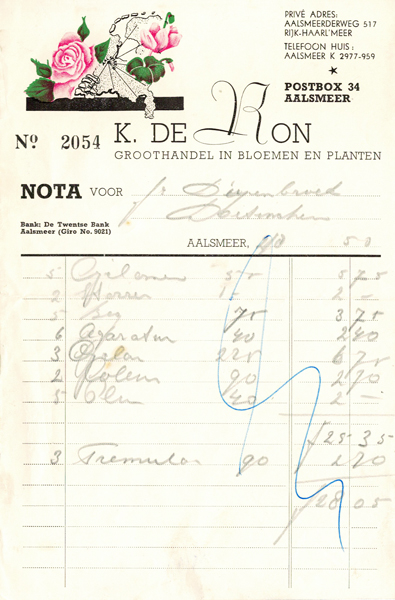 PRIVÉ ADRES:
AALSMEERDERWEG 517
RIJK-HAARL'MEER
TELEFOON HUIS:
AALSMEER K 2977-959
POSTBOX 34
AALSMEER
No 2054
K. DE RON
GROOTHANDEL IN BLOEMEN EN PLANTEN
NOTA VOOR
Bank: De Twentse Bank
Aalsmeer (Giro No. 9021)
AALSMEER, 50
5 Cyclamen 5 75
2 1- 2 -
5 Beg 75 3 75
6 40 2 40
3 225 6 75
2 90 2 70
5 40 2 -
25 35
3 Tremulas 90 2 70
28 05